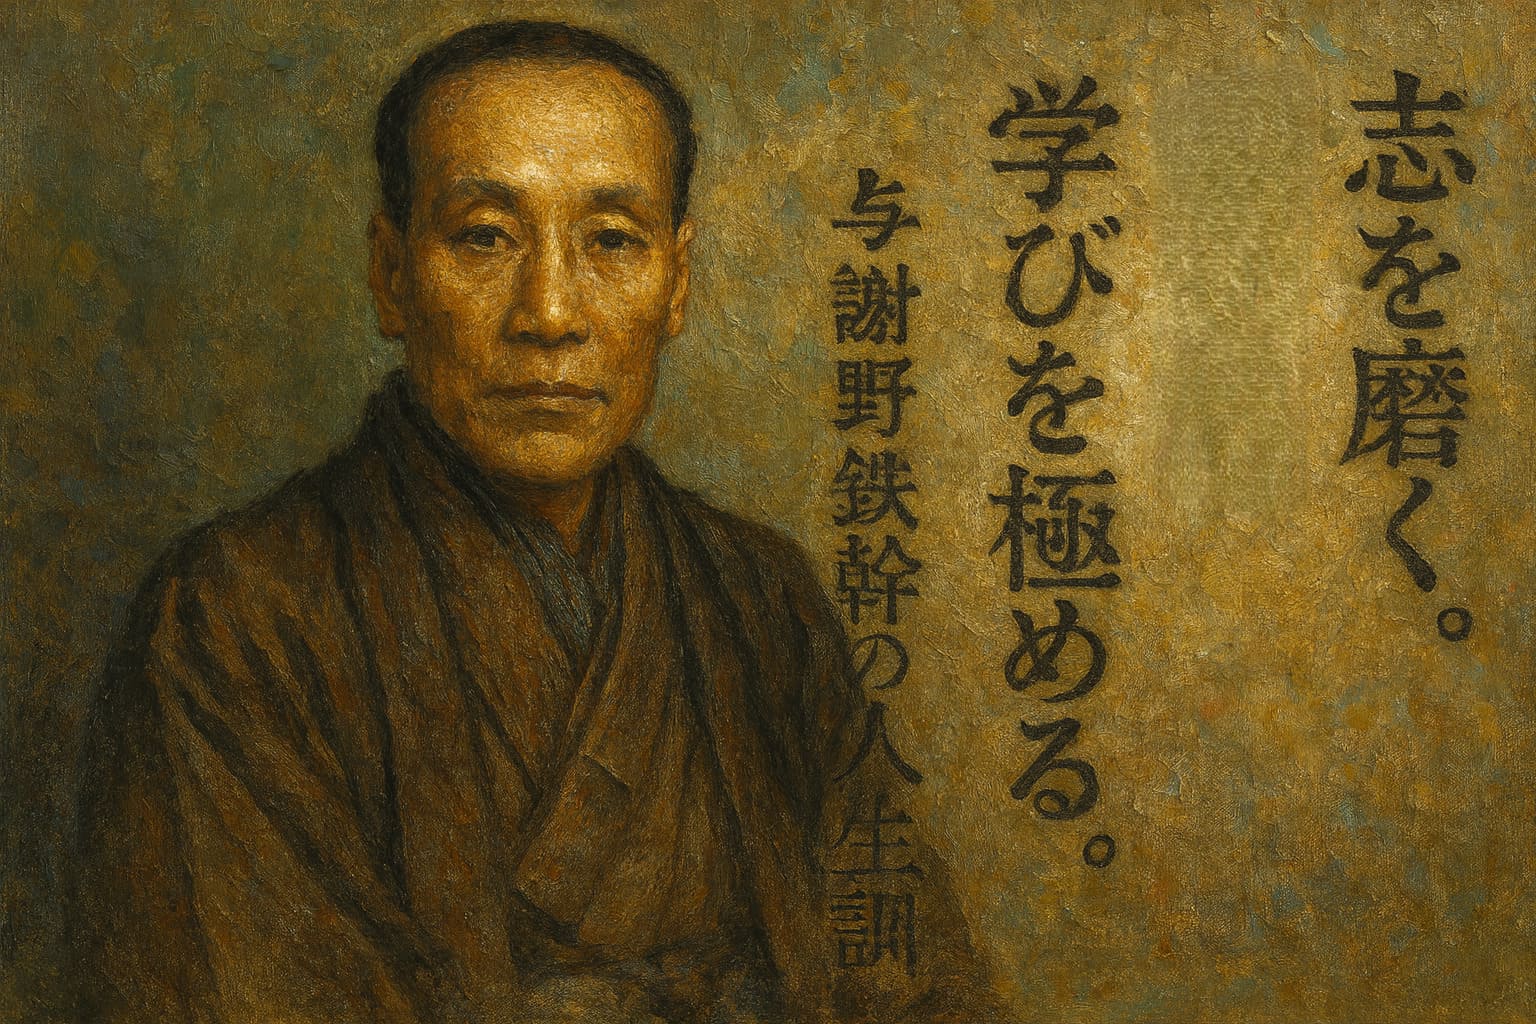 志を磨く。
学びを極める。
与謝野鉄幹の人生訓